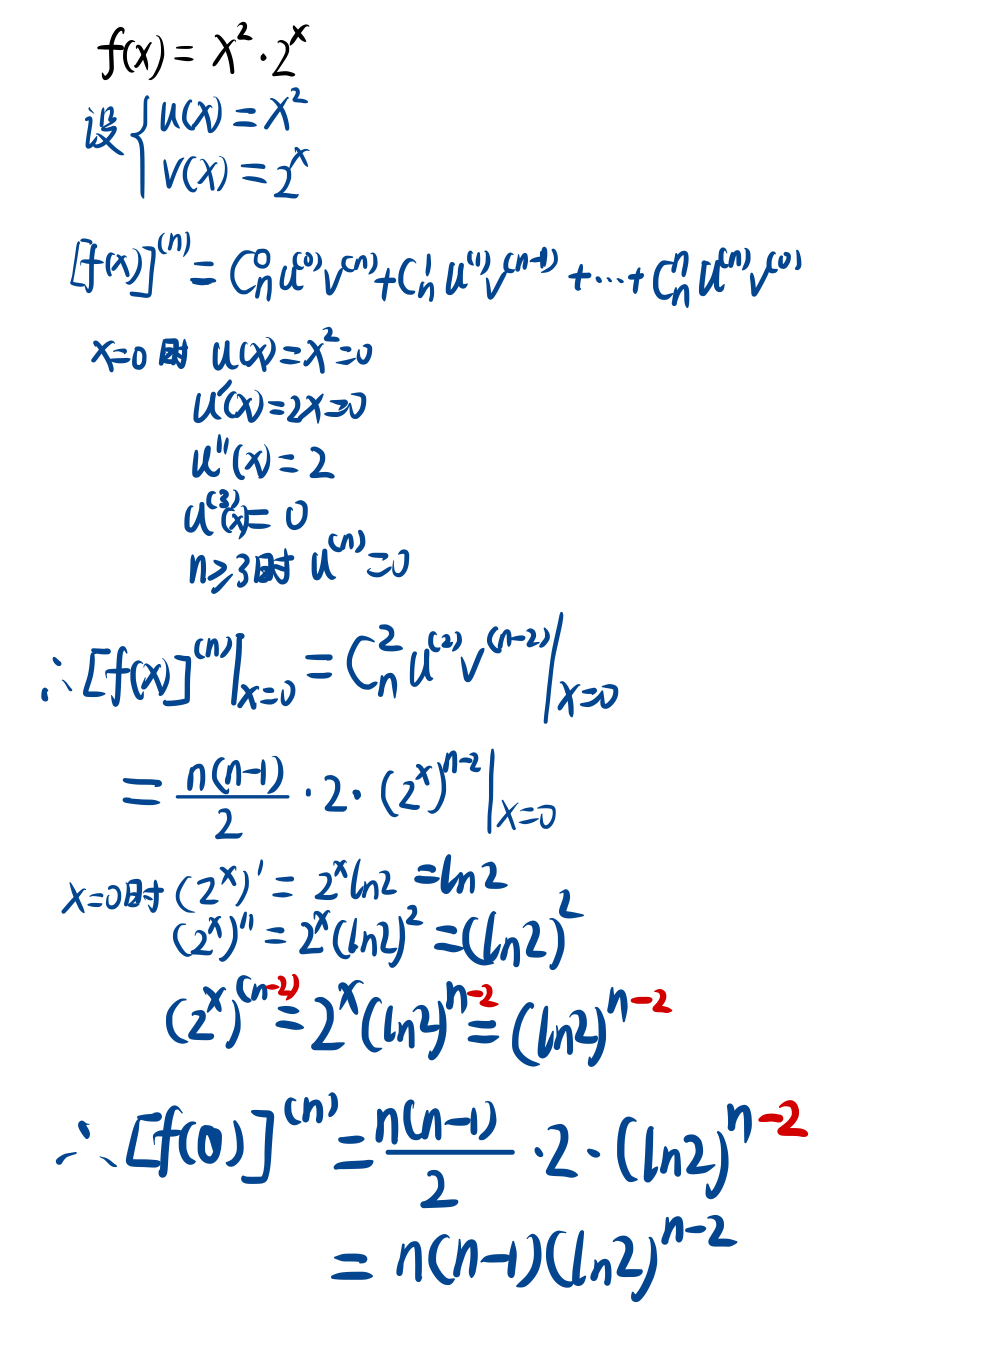 f(x) = x² · 2ˣ
设 { u(x) = x²
v(x) = 2ˣ
[f(x)]⁽ⁿ⁾ = Cₙ⁰ u⁽⁰⁾ v⁽ⁿ⁾ + Cₙ¹ u⁽¹⁾ v⁽ⁿ⁻¹⁾ + ... + Cₙⁿ u⁽ⁿ⁾ v⁽⁰⁾
x=0 时 u(x) = x² = 0
u'(x) = 2x = 0
u''(x) = 2
u⁽³⁾(x) = 0
n ≥ 3 时 u⁽ⁿ⁾ = 0
∴ [f(x)]⁽ⁿ⁾|ₓ₌₀ = Cₙ² u⁽²⁾ v⁽ⁿ⁻²⁾|ₓ₌₀
= n(n-1)/2 · 2 · (2ˣ)ⁿ⁻²|ₓ₌₀
x=0时 (2ˣ)' = 2ˣ ln2 = ln2
(2ˣ)'' = 2ˣ (ln2)² = (ln2)²
(2ˣ)⁽ⁿ⁻²⁾ = 2ˣ (ln2)ⁿ⁻² = (ln2)ⁿ⁻²
∴ [f(0)]⁽ⁿ⁾ = n(n-1)/2 · 2 · (ln2)ⁿ⁻²
= n(n-1)(ln2)ⁿ⁻²